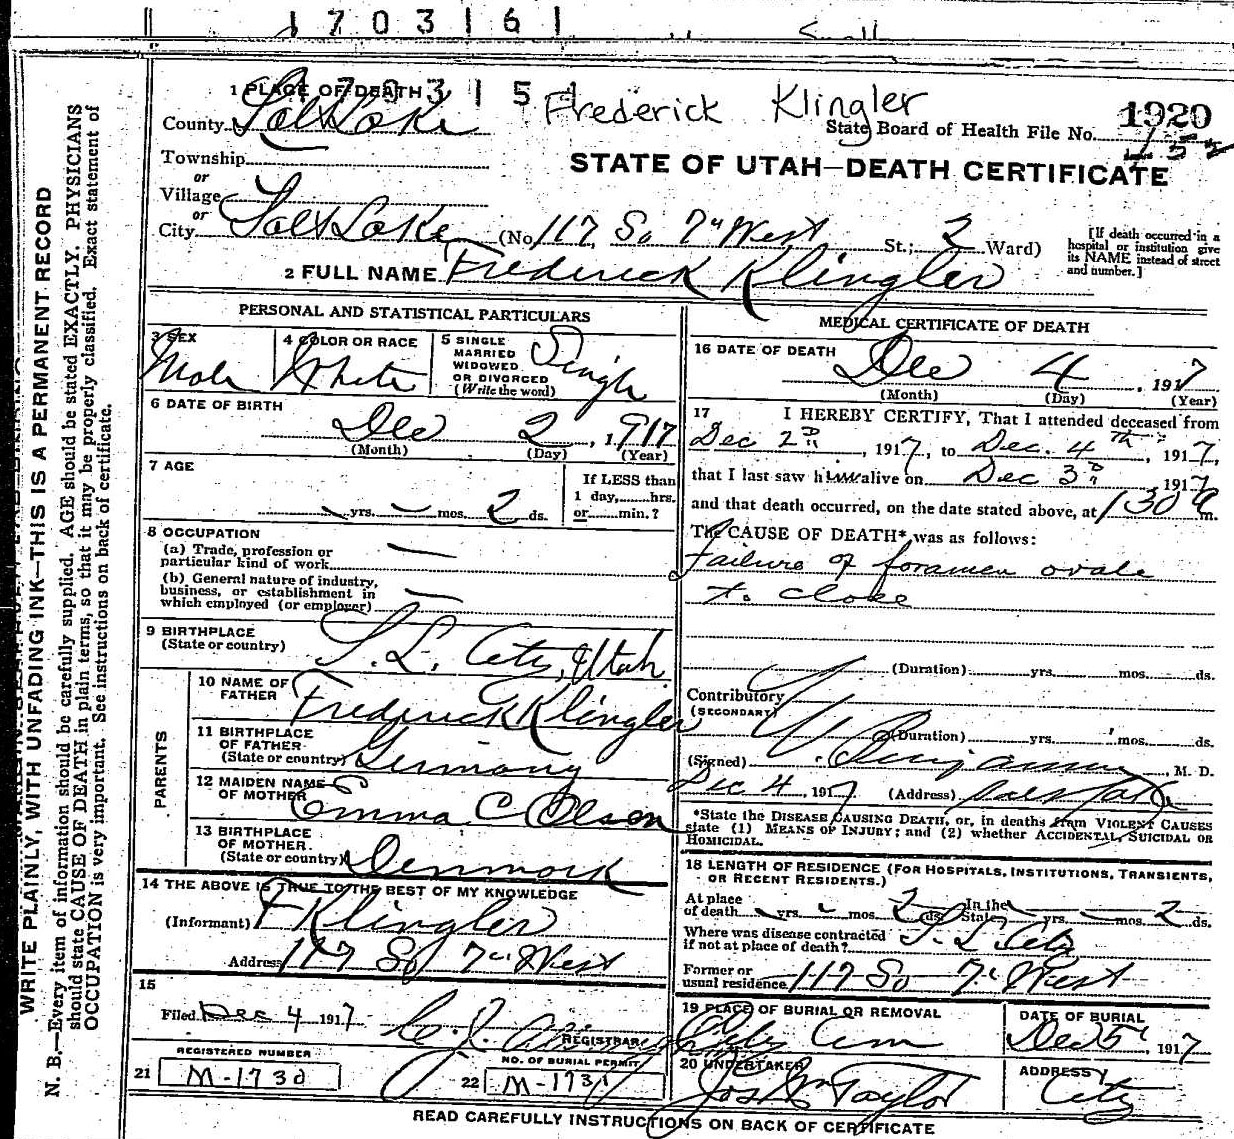 1703161
1 PLACE OF DEATH
70315
Frederick Klingler
1920
County Salt Lake
State Board of Health File No.
Township
or
STATE OF UTAH—DEATH CERTIFICATE
Village
or
City Salt Lake (No. 117 So 7" West St.; 2 Ward)
[If death occurred in a
hospital or institution give
its NAME instead of street
and number.]
2 FULL NAME Frederick Klingler
PERSONAL AND STATISTICAL PARTICULARS
3 SEX
Male
4 COLOR OR RACE
White
5 SINGLE
MARRIED
WIDOWED
OR DIVORCED
(Write the word)
Single
6 DATE OF BIRTH
Dec 2, 1917
(Month) (Day) (Year)
7 AGE
— yrs. — mos. 2 ds.
If LESS than
1 day,......hrs.
or......min.?
8 OCCUPATION
(a) Trade, profession or
particular kind of work —
(b) General nature of industry,
business, or establishment in
which employed (or employer) —
9 BIRTHPLACE
(State or country) S. L. City, Utah
PARENTS
10 NAME OF
FATHER Frederick Klingler
11 BIRTHPLACE
OF FATHER
(State or country) Germany
12 MAIDEN NAME
OF MOTHER Emma C Olsen
13 BIRTHPLACE
OF MOTHER
(State or country) Denmark
14 THE ABOVE IS TRUE TO THE BEST OF MY KNOWLEDGE
(Informant) F Klingler
Address 117 So 7" West
15
Filed Dec 4 1917
REGISTRAR
REGISTERED NUMBER
21 M-1730
NO. OF BURIAL PERMIT
22 M-1731
MEDICAL CERTIFICATE OF DEATH
16 DATE OF DEATH
Dec 4, 1917
(Month) (Day) (Year)
17 I HEREBY CERTIFY, That I attended deceased from
Dec 2D, 1917, to Dec. 4th, 1917,
that I last saw him alive on Dec 3D, 1917
and that death occurred, on the date stated above, at 130 a m.
The CAUSE OF DEATH* was as follows:
Failure of foramen ovale
to close
(Duration) yrs. mos. ds.
Contributory
(SECONDARY)
(Duration) yrs. mos. ds.
(Signed) Benjamin, M. D.
Dec 4, 1917 (Address) Salt Lake
*State the DISEASE CAUSING DEATH, or, in deaths from VIOLENT CAUSES
state (1) MEANS OF INJURY; and (2) whether ACCIDENTAL, SUICIDAL OR
HOMICIDAL.
18 LENGTH OF RESIDENCE (FOR HOSPITALS, INSTITUTIONS, TRANSIENTS,
OR RECENT RESIDENTS.)
At place
of death — yrs. — mos. 2 ds.
In the
State — yrs. — mos. 2 ds.
Where was disease contracted
if not at place of death? S. L. City
Former or
usual residence 117 So 7" West
19 PLACE OF BURIAL OR REMOVAL
City Cem
DATE OF BURIAL
Dec 5", 1917
20 UNDERTAKER
Jos Wm Taylor
ADDRESS
City
READ CAREFULLY INSTRUCTIONS ON BACK OF CERTIFICATE
WRITE PLAINLY, WITH UNFADING INK—THIS IS A PERMANENT RECORD
N. B.—Every item of information should be carefully supplied. AGE should be stated EXACTLY. PHYSICIANS
should state CAUSE OF DEATH in plain terms, so that it may be properly classified. Exact statement of
OCCUPATION is very important. See instructions on back of certificate.